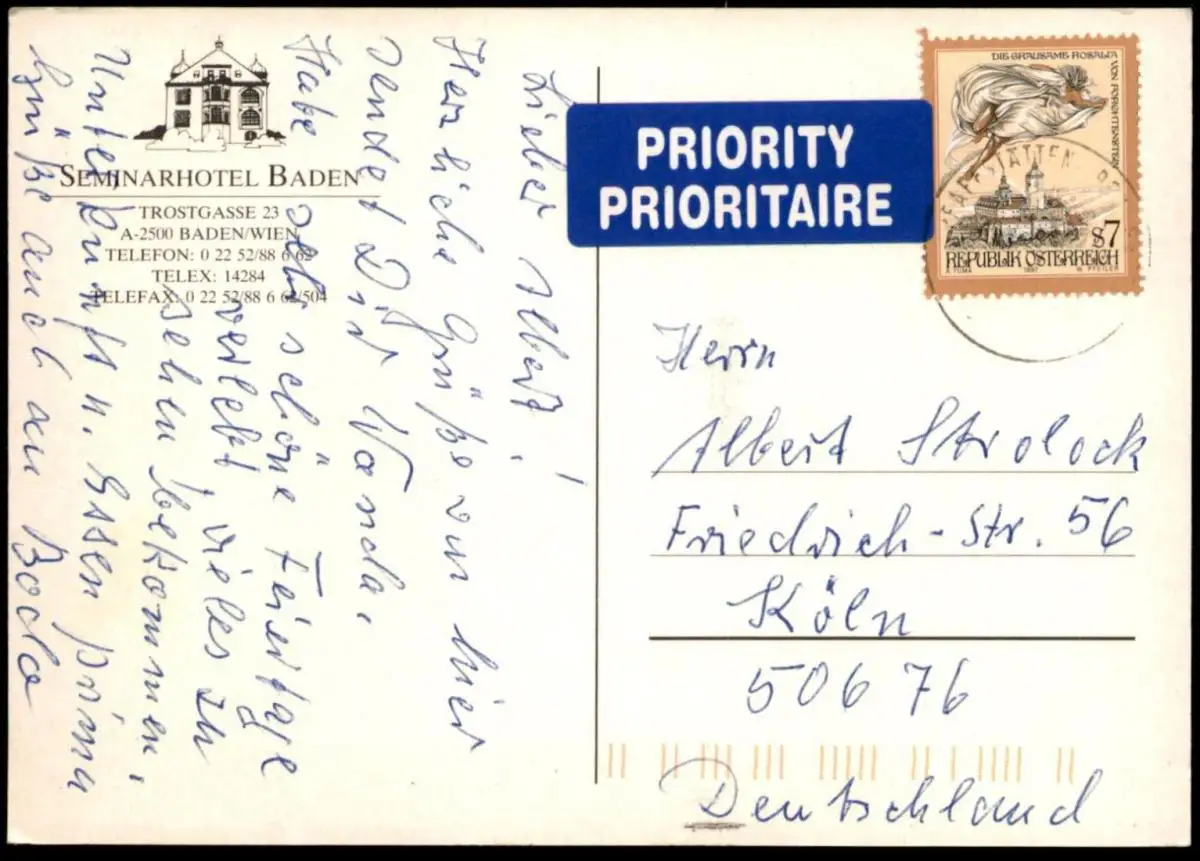 SEMINARHOTEL BADEN
TROSTGASSE 23
A-2500 BADEN/WIEN
TELEFON: 0 22 52/88 6 62
TELEX: 14284
TELEFAX: 0 22 52/88 6 62/504
Lieber Albert,
Herzliche Grüße von hier
sendet Dir Wanda.
Habe sehr schöne Feiertage
verlebt, vieles zu
sehen bekommen,
Unterkunft u. Essen prima
Grüße auch an Bodo
PRIORITY
PRIORITAIRE
DIE GRAUSAME ROSALIA
VON FORCHTENSTEIN
PFAFFSTÄTTEN
S7
REPUBLIK ÖSTERREICH
A. TUMA 1997 W. PFEILER
Herrn
Albert Strolock
Friedrich-Str. 56
Köln
50676
Deutschland